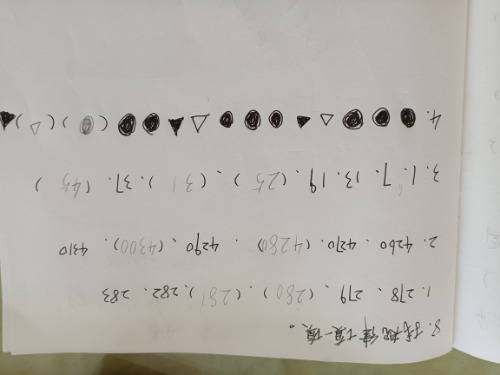 8. 找规律填一填。
1. 278、279、(280)、(281)、282、283
2. 4260、4270、(4280)、4290、(4300)、4310
3. 1、7、13、19、(25)、(31)、37、(45)
4. ●●●△▲●●●△▲●●(●)(△)(▲)